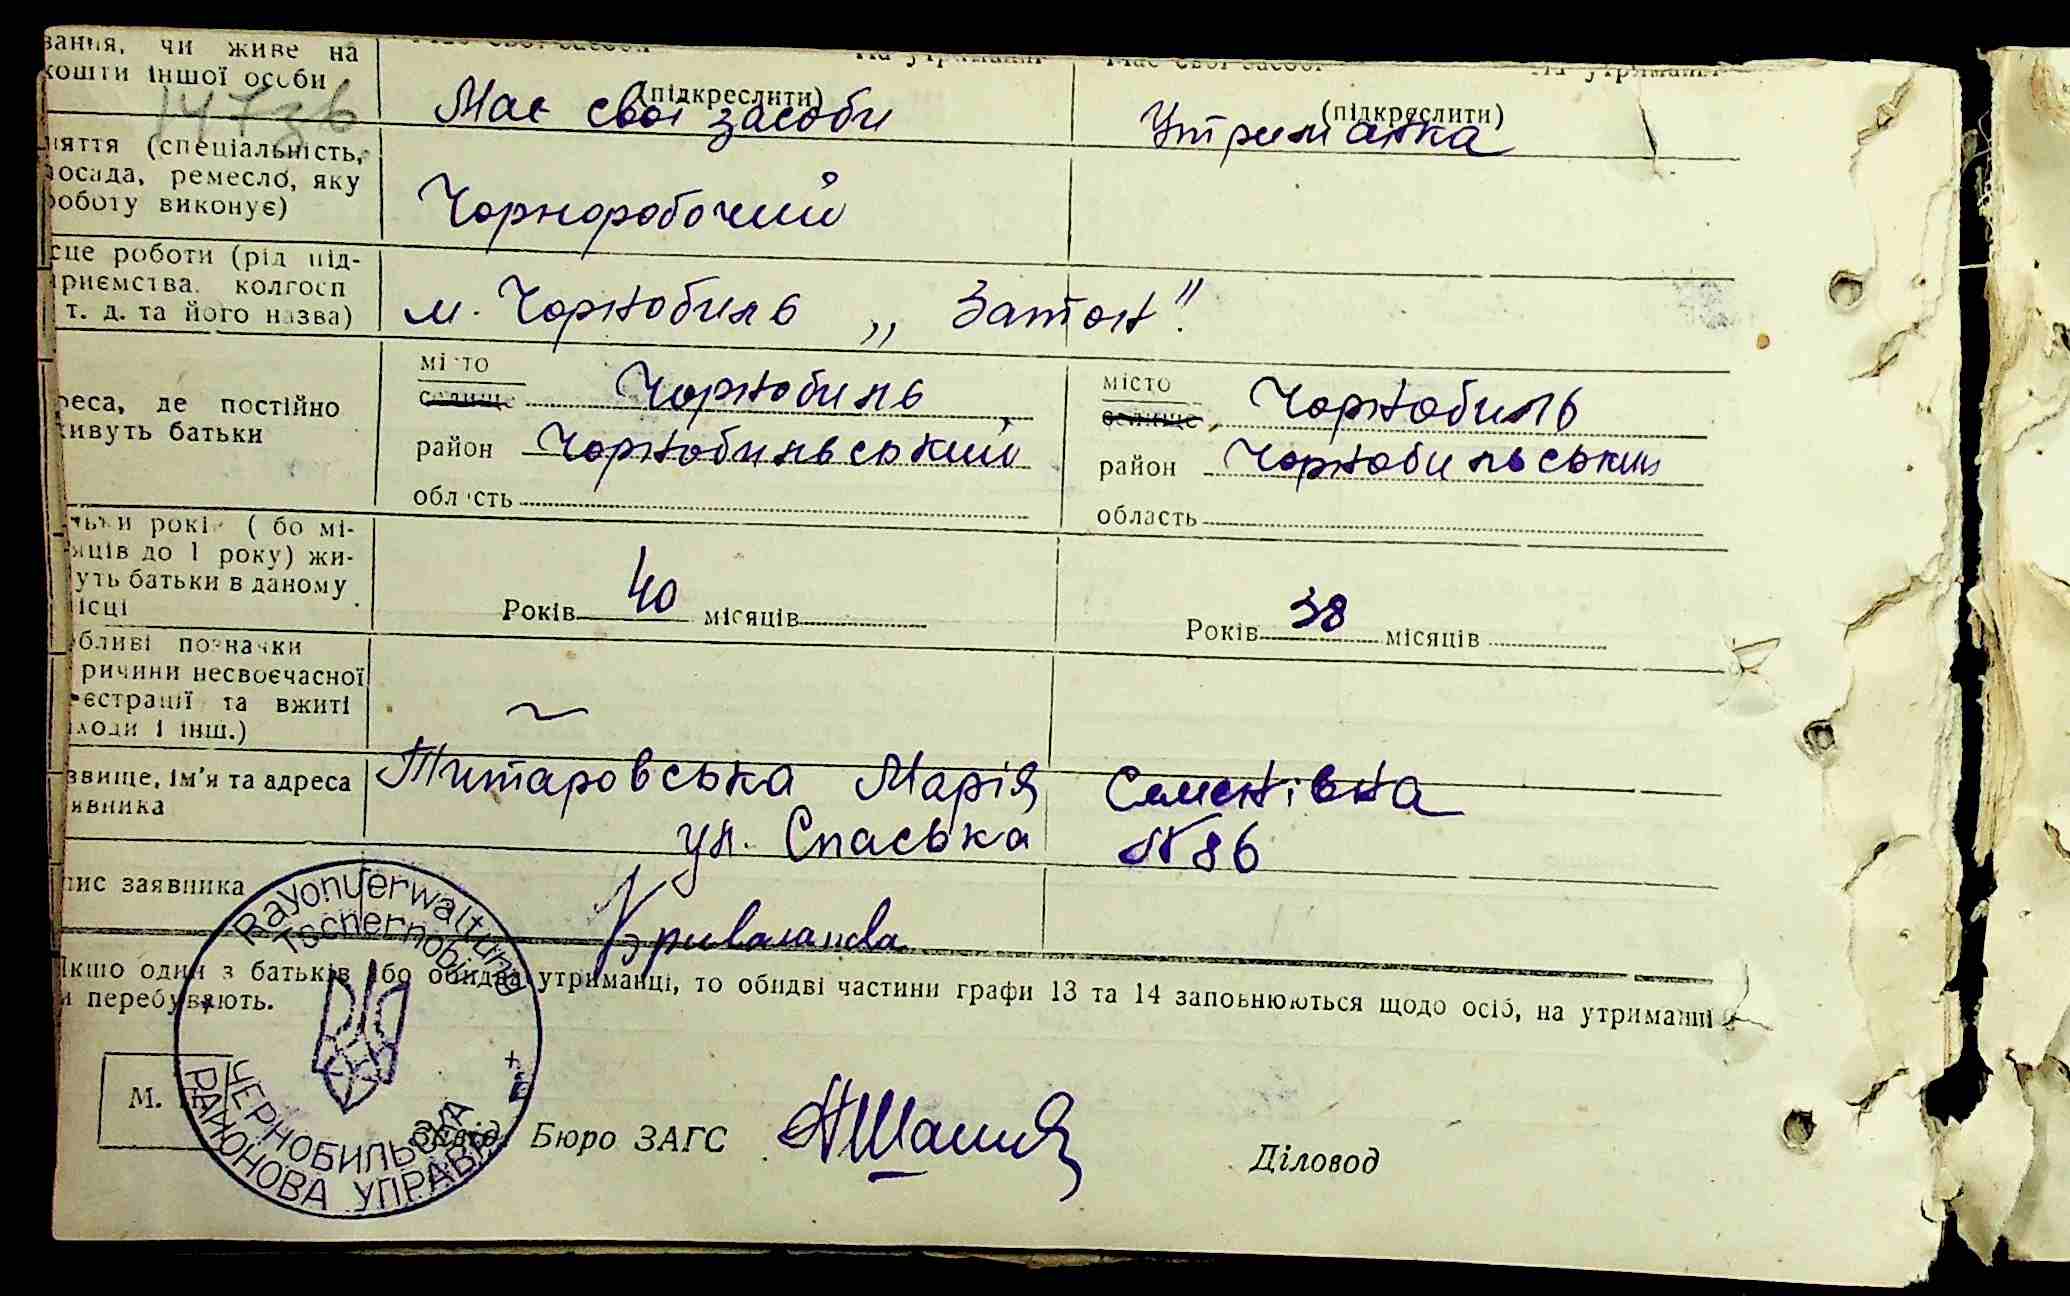 вання, чи живе на Має свої засоби На утриманні Має свої засоби На утриманні
кошти іншої особи (підкреслити) (підкреслити)
14736 Має свої засоби Утриманка
няття (спеціальність,
посада, ремесло, яку
роботу виконує) Чорноробочий
сце роботи (рід під-
приємства, колгосп
т. д. та його назва) м. Чорнобиль „Затон".
місто Чорнобиль місто Чорнобиль
селище селище
реса, де постійно
живуть батьки район Чорнобильський район Чорнобильський
область область
льки років ( бо мі-
яців до 1 року) жи-
уть батьки в даному
ісці Років 40 місяців Років 38 місяців
бливі позначки
ричини несвоєчасної
єстрації та вжиті
ходи і інш.) ~
звище, ім'я та адреса Титаровська Марія Семенівна
явника ул. Спаська № 86
пис заявника
Якщо один з батьків або обидва утриманці, то обидві частини графи 13 та 14 заповнюються щодо осіб, на утриманні
и перебувають.
Rayonverwaltung
Tschernobil
М. П.
ЧЕРНОБИЛЬСЬКА
РАЙОНОВА УПРАВА
Завід. Бюро ЗАГС Діловод